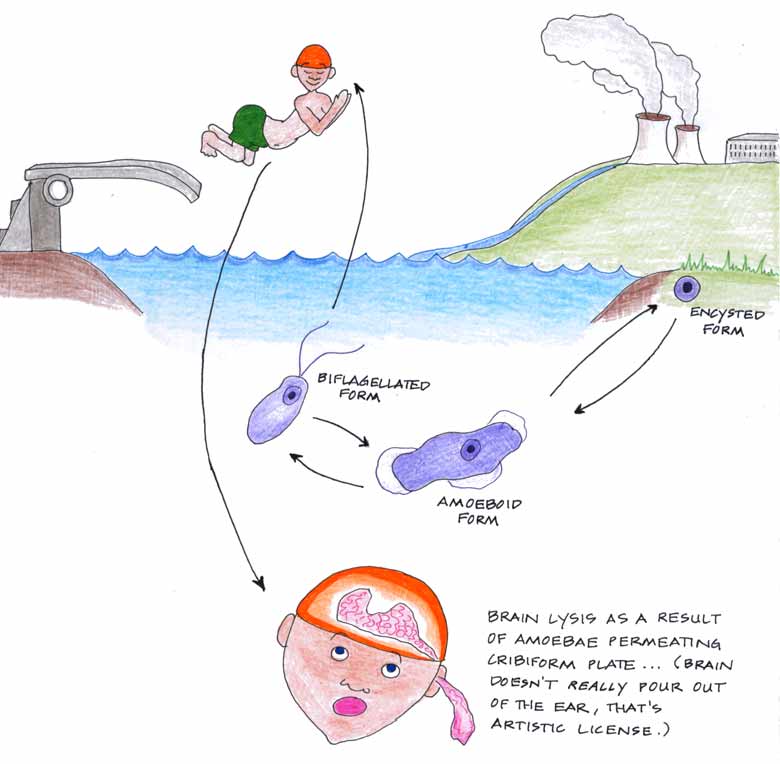 ENCYSTED
FORM
BIFLAGELLATED
FORM
AMOEBOID
FORM
BRAIN LYSIS AS A RESULT
OF AMOEBAE PERMEATING
CRIBIFORM PLATE... (BRAIN
DOESN'T REALLY POUR OUT
OF THE EAR, THAT'S
ARTISTIC LICENSE.)